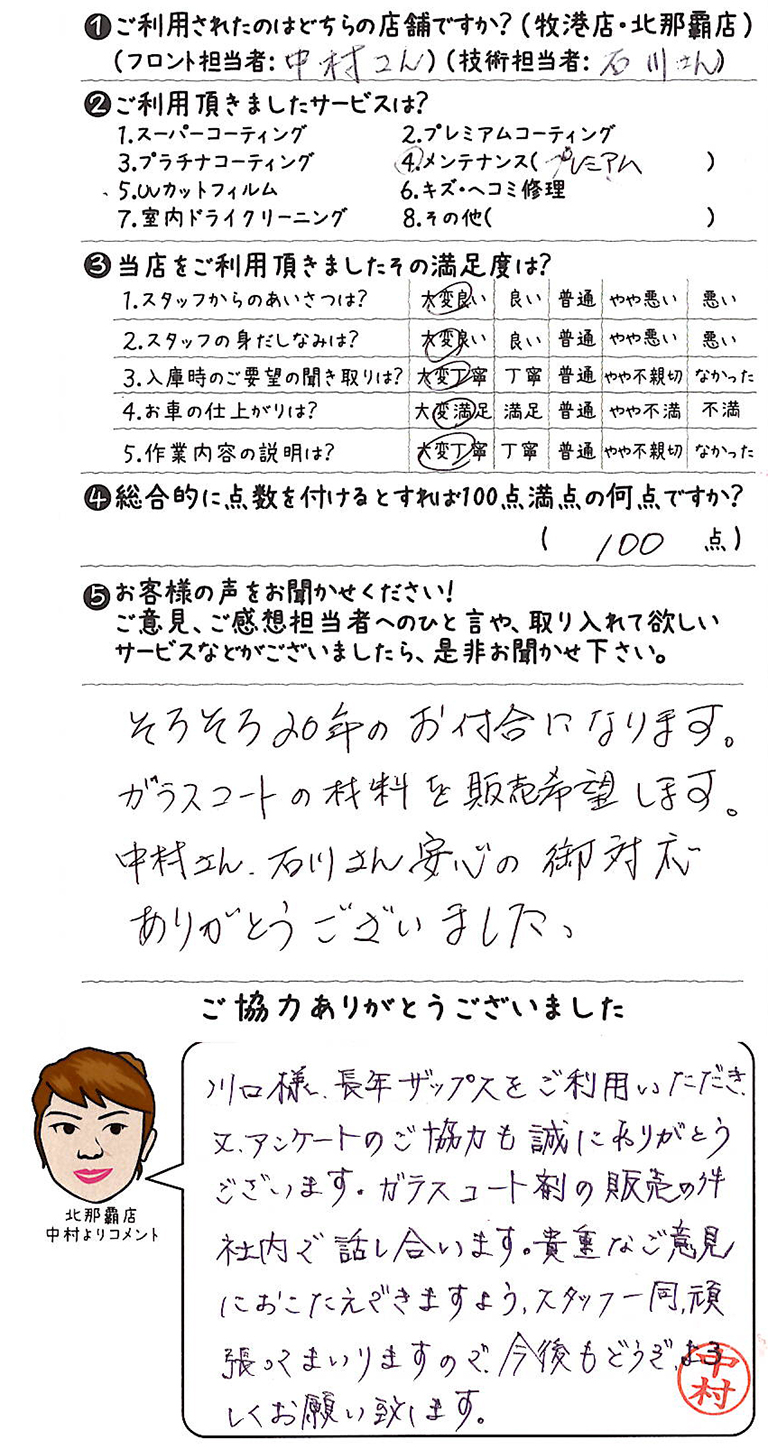 ❶ご利用されたのはどちらの店舗ですか?(牧港店・北那覇店)
(フロント担当者: 中村さん)(技術担当者: 石川さん)
❷ご利用頂きましたサービスは?
1.スーパーコーティング 2.プレミアムコーティング
3.プラチナコーティング 4.メンテナンス(プレミアム )
5.UVカットフィルム 6.キズ・ヘコミ修理
7.室内ドライクリーニング 8.その他( )
❸当店をご利用頂きましたその満足度は?
1.スタッフからのあいさつは? 大変良い 良い 普通 やや悪い 悪い
2.スタッフの身だしなみは? 大変良い 良い 普通 やや悪い 悪い
3.入庫時のご要望の聞き取りは? 大変丁寧 丁寧 普通 やや不親切 なかった
4.お車の仕上がりは? 大変満足 満足 普通 やや不満 不満
5.作業内容の説明は? 大変丁寧 丁寧 普通 やや不親切 なかった
❹総合的に点数を付けるとすれば100点満点の何点ですか?
( 100 点)
❺お客様の声をお聞かせください!
ご意見、ご感想担当者へのひと言や、取り入れて欲しい
サービスなどがございましたら、是非お聞かせ下さい。
そろそろ20年のお付合になります。
ガラスコートの材料を販売希望します。
中村さん、石川さん安心の御対応
ありがとうございました、
ご協力ありがとうございました
川口様、長年ザップスをご利用いただき、
又、アンケートのご協力も誠にありがとう
ございます。ガラスコート剤の販売の件
社内で話し合います。貴重なご意見
におこたえできますよう、スタッフ一同、頑
張ってまいりますので、今後もどうぞ、よろ
しくお願い致します。
中村
北那覇店
中村よりコメント